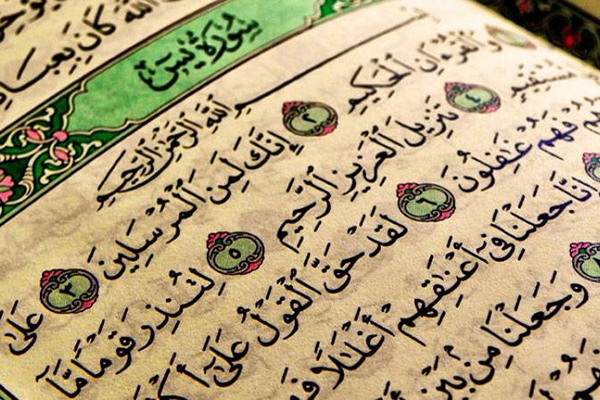 ٱللَّهَ كَانَ
سُورَةُ يسٓ
ٱللَّهِ ٱلرَّحْمَٰنِ ٱلرَّحِيمِ
وَٱلْقُرْءَانِ ٱلْحَكِيمِ ٢ إِنَّكَ لَمِنَ ٱلْمُرْسَلِينَ ٣ عَلَىٰ
مُّسْتَقِيمٍ ٤ تَنزِيلَ ٱلْعَزِيزِ ٱلرَّحِيمِ ٥ لِتُنذِرَ قَوْمًا مَّآ
فَهُمْ غَٰفِلُونَ ٦ لَقَدْ حَقَّ ٱلْقَوْلُ عَلَىٰٓ
إِنَّا جَعَلْنَا فِىٓ أَعْنَٰقِهِمْ أَغْلَٰلًا
وَجَعَلْنَا مِنۢ بَيْنِ